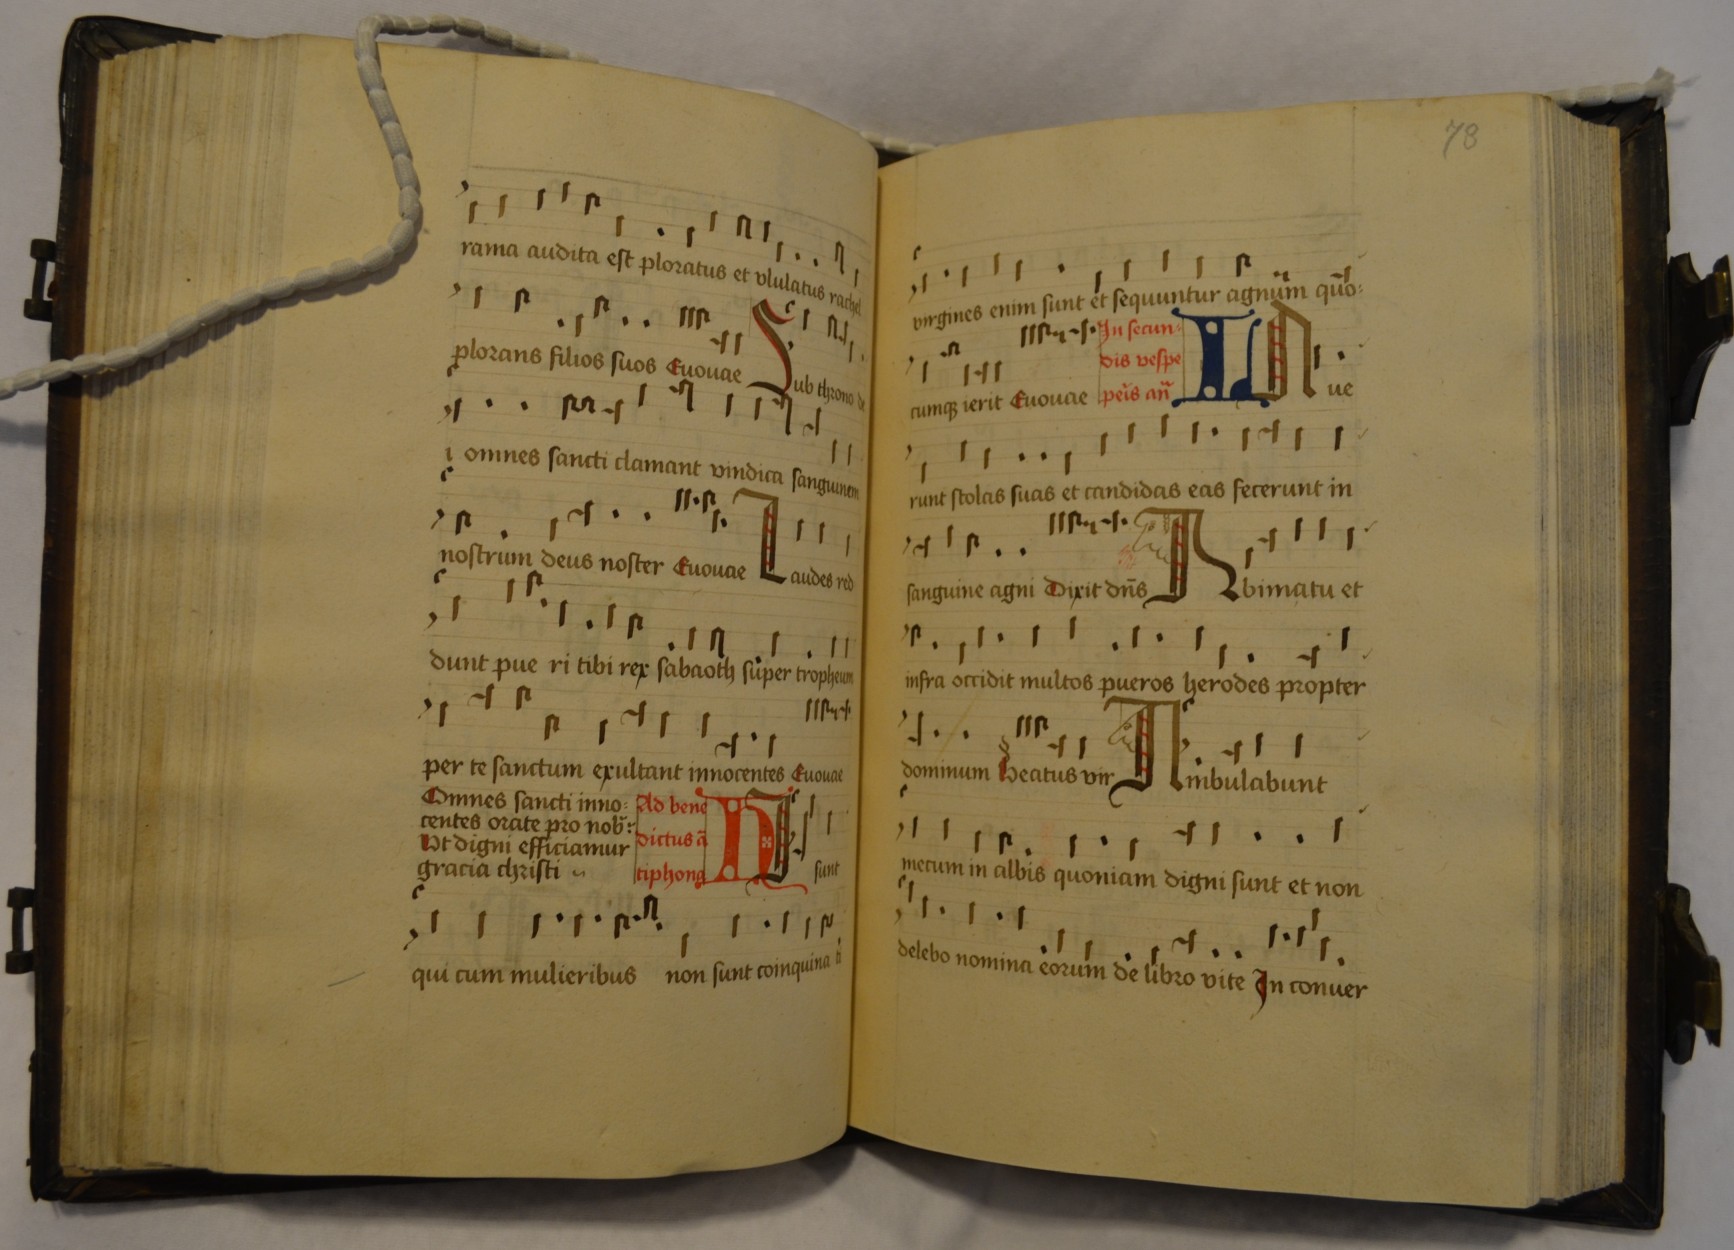 rama audita est ploratus et vlulatus rachel
plorans filios suos Euouae Sub throno de
i omnes sancti clamant vindica sanguinem
nostrum deus noster Euouae Laudes red
dunt pue ri tibi rex sabaoth super tropheum
per te sanctum exultant innocentes Euouae
Omnes sancti inno:
centes orate pro nob̃:
Vt digni efficiamur
gracia christi
Ad bene
dictus ã
tiphona
HI sunt
qui cum mulieribus non sunt coinquina ti
78
virgines enim sunt et sequuntur agnũm quo:
cumqꝫ ierit Euouae
In secun:
dis vespe
peĩs añ
LAue
runt stolas suas et candidas eas fecerunt in
sanguine agni Dixit dñs A bimatu et
infra occidit multos pueros herodes propter
dominum Beatus vir Ambulabunt
mecum in albis quoniam digni sunt et non
delebo nomina eorum de libro vite In conuer